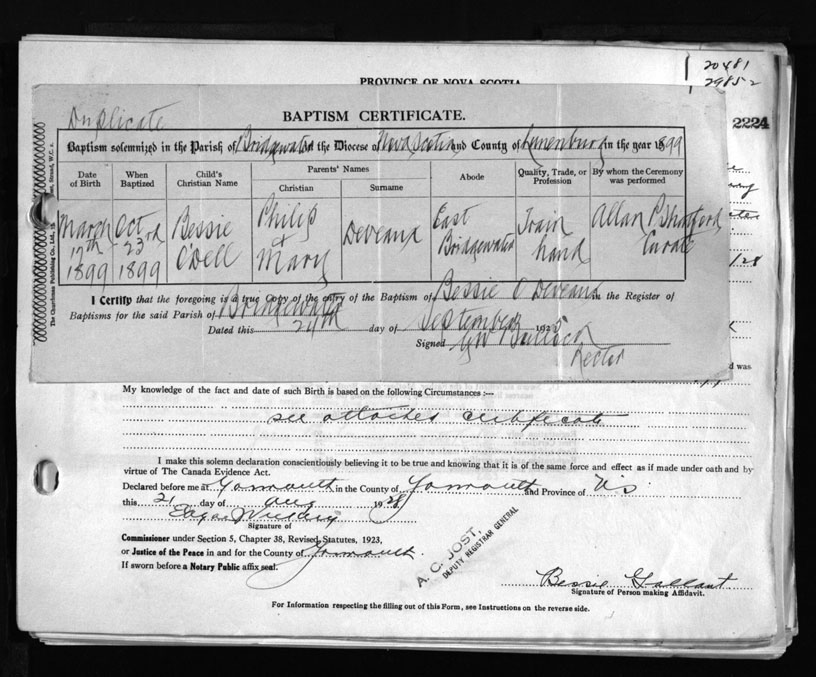 20481
29852
PROVINCE OF NOVA SCOTIA
2224
Duplicate
BAPTISM CERTIFICATE.
Baptism solemnized in the Parish of Bridgewater in the Diocese of Nova Scotia and County of Lunenburg in the year 1899
Date of Birth
When Baptized
Child's Christian Name
Parents' Names
Christian
Surname
Abode
Quality, Trade, or Profession
By whom the Ceremony was performed
March 17th 1899
Oct 23rd 1899
Bessie O'Dell
Philip + Mary
Deveand
East Bridgewater
Train hand
Allan P. Shatford Curate
I Certify that the foregoing is a true Copy of the entry of the Baptism of Bessie O Deveand in the Register of
Baptisms for the said Parish of Bridgewater
Dated this 24th day of September 1925
Signed G W Bullock
Rector
/28
d was
My knowledge of the fact and date of such Birth is based on the following Circumstances :—
see attached certificate
I make this solemn declaration conscientiously believing it to be true and knowing that it is of the same force and effect as if made under oath and by
virtue of The Canada Evidence Act.
Declared before me at Yarmouth in the County of Yarmouth and Province of NS
this 21 day of Aug 1928
Signature of
Commissioner under Section 5, Chapter 38, Revised Statutes, 1923,
or Justice of the Peace in and for the County of Yarmouth.
If sworn before a Notary Public affix seal.
A. C. JOST,
DEPUTY REGISTRAR GENERAL
Bessie Gallant
Signature of Person making Affidavit.
For Information respecting the filling out of this Form, see Instructions on the reverse side.